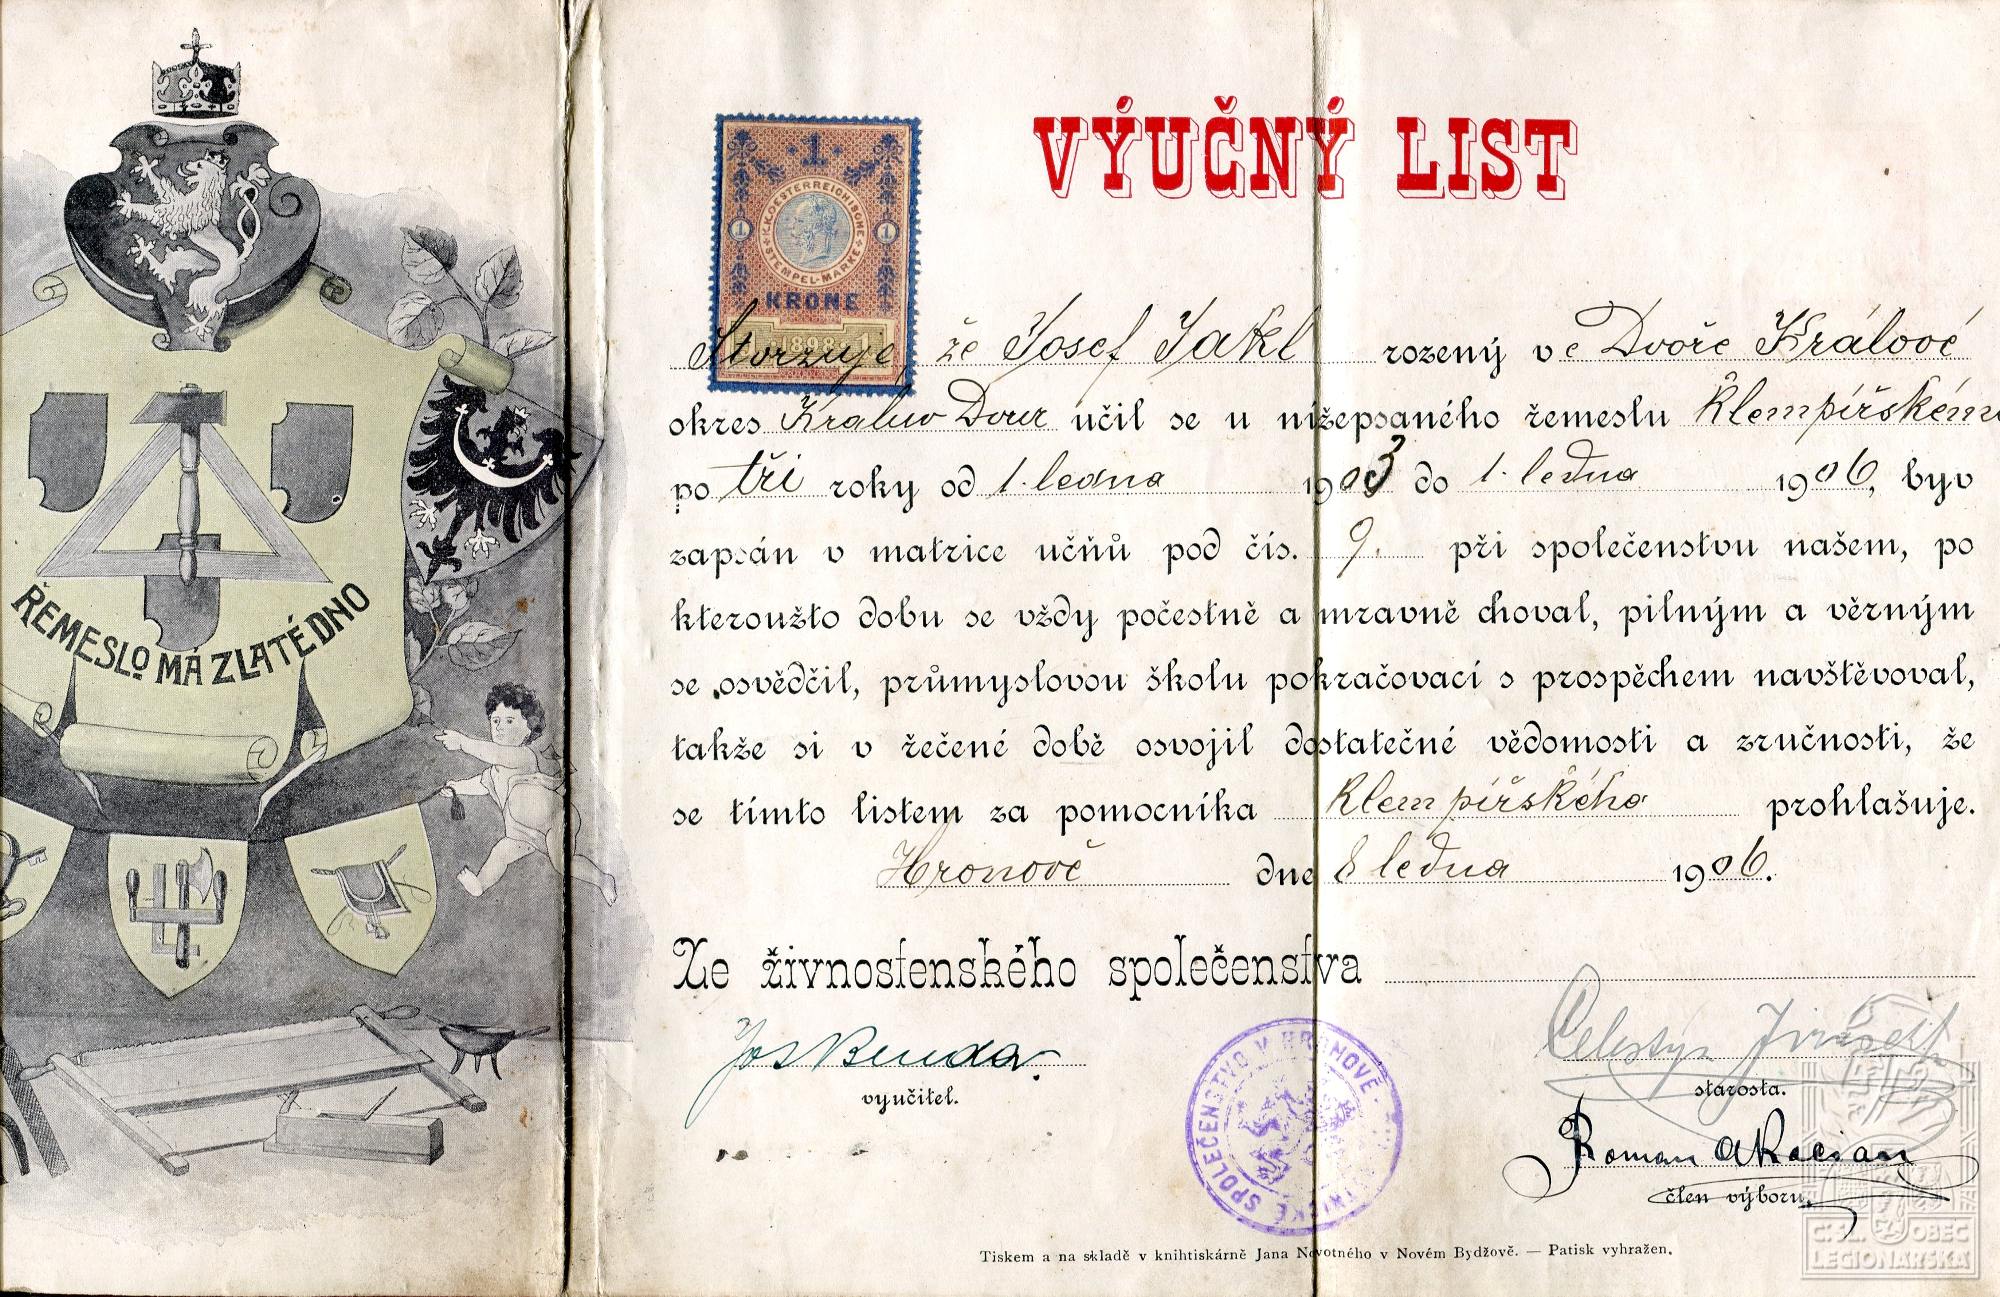 VÝUČNÝ LIST
1
K.K. OESTERREICHISCHE STEMPEL-MARKE
1 1
KRONE
1898
Stvrzuje že Josef Jakl rozený ve Dvoře Králové
okres Králův Dvur učil se u nížepsaného řemeslu klempířskému
po tři roky od 1. ledna 1903 do 1. ledna 1906, byv
zapsán v matrice učňů pod čís. 9. při společenstvu našem, po
kteroužto dobu se vždy počestně a mravně choval, pilným a věrným
se osvědčil, průmyslovou školu pokračovací s prospěchem navštěvoval,
takže si v řečené době osvojil dostatečné vědomosti a zručnosti, že
se tímto listem za pomocníka klempířského prohlašuje.
Hronově dne 8 ledna 1906.
Ze živnostenského společenstva
Jos Benda.
vyučitel.
Celestýn
starosta.
Roman
člen výboru.
SPOLEČENSTVO V HRONOVĚ
Tiskem a na skladě v knihtiskárně Jana Novotného v Novém Bydžově. — Patisk vyhražen.
ŘEMESLO MÁ ZLATÉ DNO
Č.S. OBEC
LEGIONÁŘSKÁ